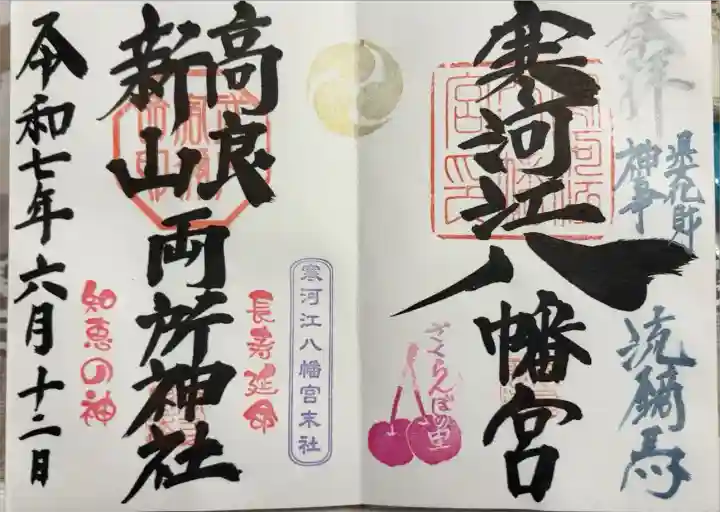 奉拝
奨花財
神事
流鏑馬
寒河江八幡宮
さくらんぼの里
寒河江八幡宮末社
高良
新山
両所神社
長寿延命
知恵の神
令和七年六月十二日